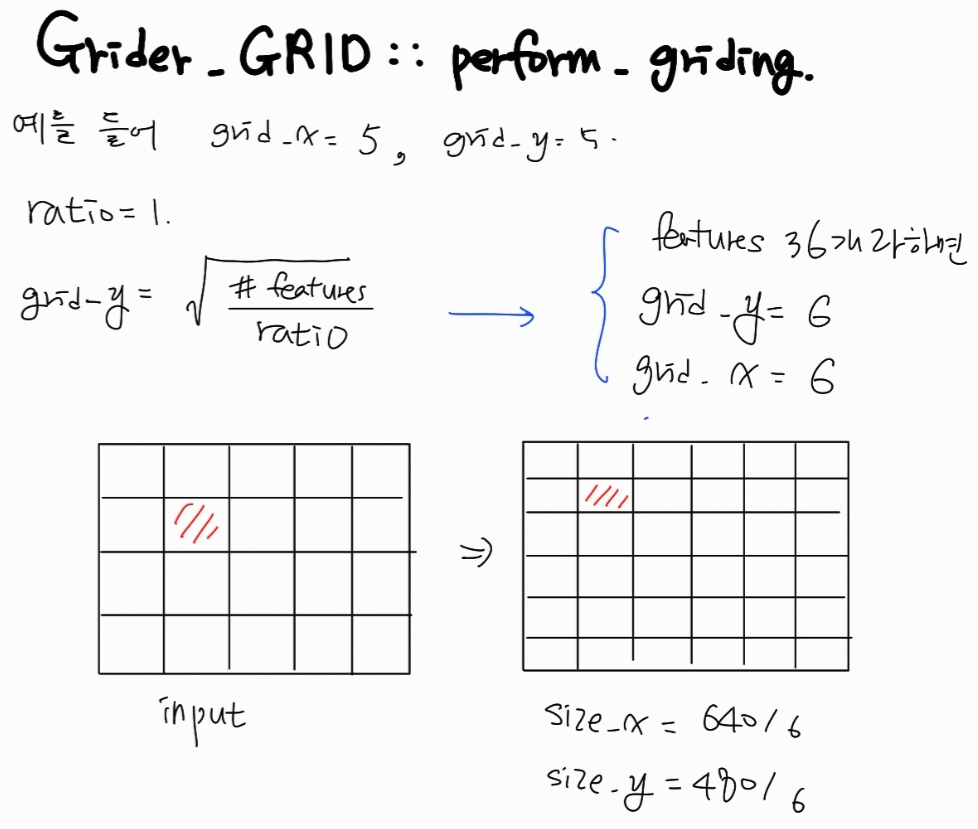 Grider_GRID :: perform_griding.
예를 들어 grid_x = 5, grid_y = 5.
ratio = 1.
grid-y = √(# features / ratio)
features 36개라하면
grid_y = 6
grid_x = 6
input
size_x = 640/6
size_y = 480/6